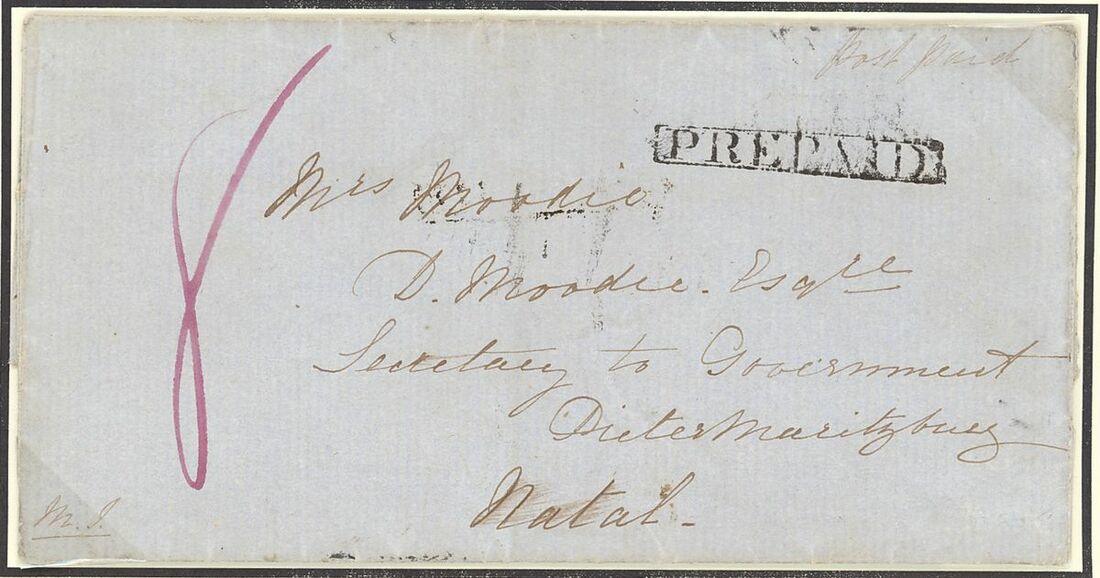 Post Paid
PREPAID
8
Mrs Moodie
D. Moodie. Esqre
Secretary to Government
PieterMaritzburg
Natal.
M. I.